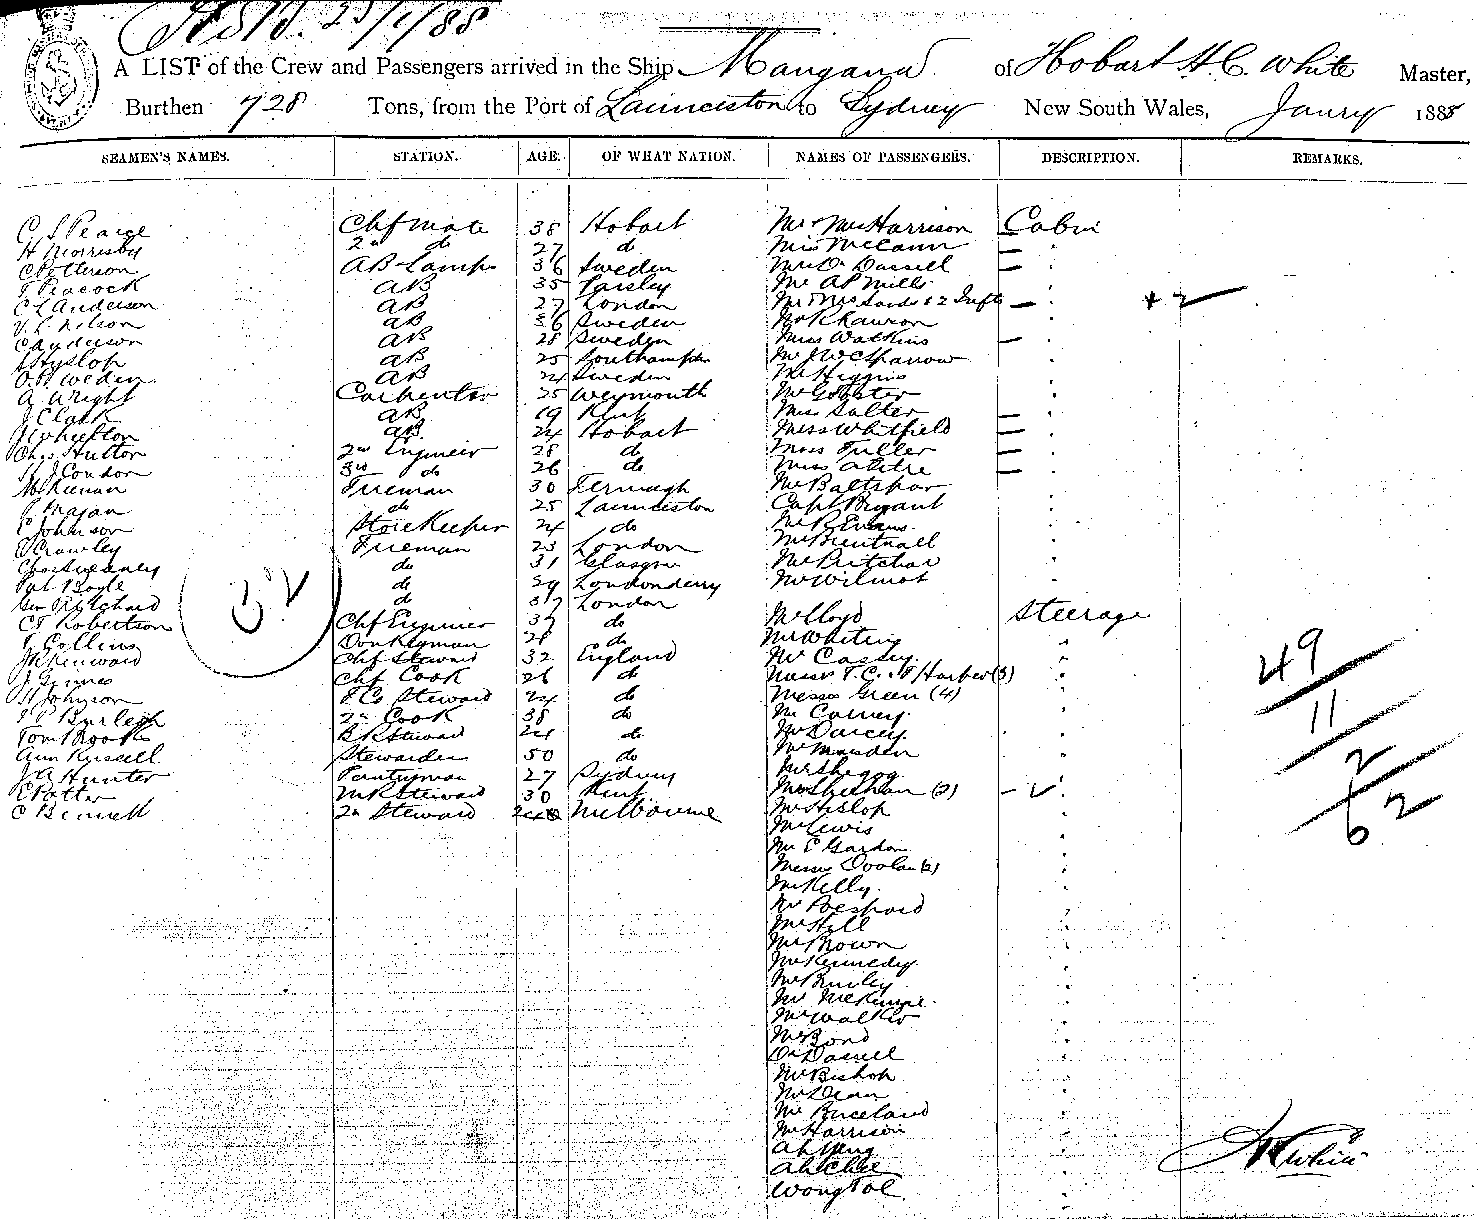 23/1/88
A LIST of the Crew and Passengers arrived in the Ship Mangana of Hobart H.C. White Master,
Burthen 728 Tons, from the Port of Launceston to Sydney New South Wales, Janry 1888
SEAMEN'S NAMES. STATION. AGE. OF WHAT NATION. NAMES OF PASSENGERS. DESCRIPTION. REMARKS.
C S Pearce Chf Mate 38 Hobart Mr Mrs Harrison Cabin
H Morrisby 2nd do 27 do Miss McCann
C Petterson AB Lamps 36 Sweden
T Peacock AB 35 Paisley Mr A P Mills
C L Anderson AB 27 London Mr Mrs Sands & 2 Infts + 2
V. L. Nilson AB 36 Sweden Mr R Rawson
C Anderson AB 28 Sweden Miss Watkins
J Hyslop AB 25 Southampton Mr J W C Sparrow
AB 24 Sweden Mr Higgins
A Wright Carpenter 25 Weymouth Mr
J Clark AB 19 Kent Miss Salter
J Wheelton AB 24 Hobart Miss Whitfield
Chas Hutton 2nd Engineer 28 do Miss Fuller
H J Condon 3rd do 26 do Miss
McKiernan Fireman 30 Mr
P. do 25 Launceston Capt Bryant
E Johnson Storekeeper 24 do Mr R Evans
C Crawley Fireman 23 London Mr Brentnall
Chas Sweeney do 31 Glasgow Mr Pritchar
Pat Boyle do 29 Londonderry Mr Wilmot
Geo Pritchard do 37 London
32
C F Robertson Chf Engineer 37 do Mr Lloyd Steerage
P Collins Donkeyman 28 do Mr Whiting
J McKinward Chf Steward 32 England Mr Cassey
J Chf Cook 26 do Messrs T. C. & F Harber (3)
H Johnson F C Steward 24 do Messrs Green (4)
49
Burleigh 2nd Cook 38 do Mr
11
Tom Brooks B R Steward 24 do Mr Darcey
Ann Russell Stewardess 50 do Mr Marsden
2
J A Hunter Pantryman 27 Sydney
C Potter M R Steward 30 Kent (2)
62
C Bennett 2nd Steward 24 Melbourne Mr Hislop
Mr Lewis
Mr E Gordon
Messrs Doolan (2)
Mr Kelly
Mr
Mr Hill
Mr Brown
Mr Kennedy
Mr
Mr McKenzie
Mr Walker
Mr Bond
Dr
Mr Bishop
Mr Dean
Mr
Mr Harrison
Ah
Ah
Wong
H C White